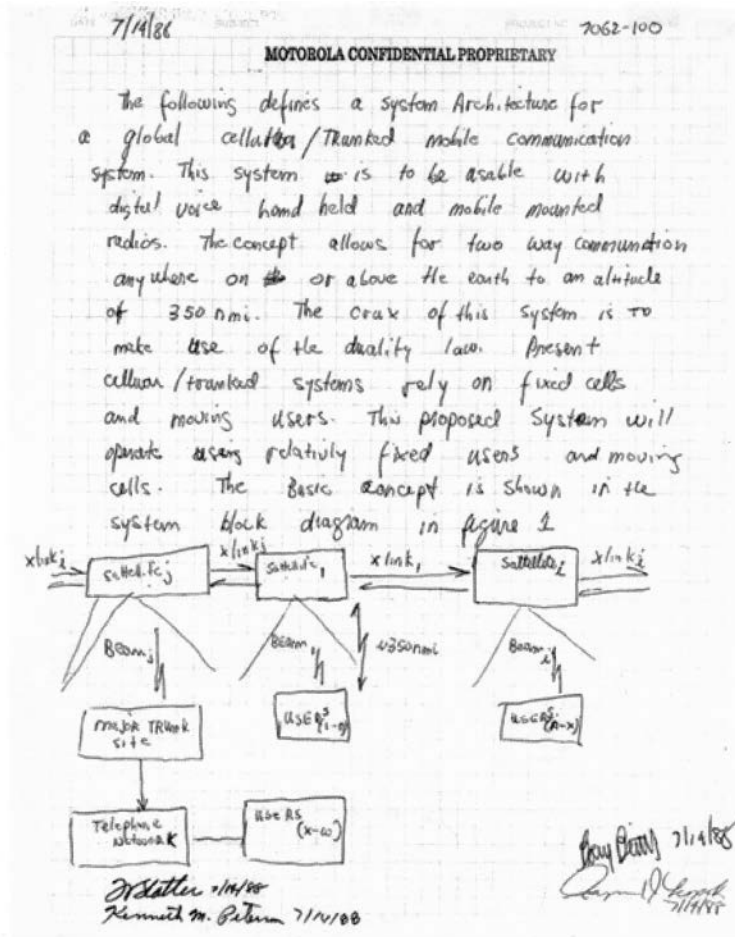 7/19/88
7062-100
MOTOROLA CONFIDENTIAL PROPRIETARY
The following defines a system Architecture for
a global cellular/Trunked mobile communication
system. This system is to be usable with
digital voice hand held and mobile mounted
radios. The concept allows for two way communition
any where on or above the earth to an altitude
of 350 nmi. The crux of this system is to
make use of the duality law. Present
celluar/trunked systems rely on fixed cells
and moving users. This proposed System will
operate using relativly fixed users and moving
cells. The Basic Concept is shown in the
system block diagram in figure 1
xlink i
Sattellite j
xlink j
Sattellite 1
xlink 1
Sattellite i
xlink i
Beam j
Beam
~350nmi
Beam i
Major TRUNK
site
USERS
(1-n)
USERS
(A-x)
Telephone
Network
USERS
(x-ω)
7/19/88
7/19/88
Kenneth M. Peterson 7/14/88
7/19/88